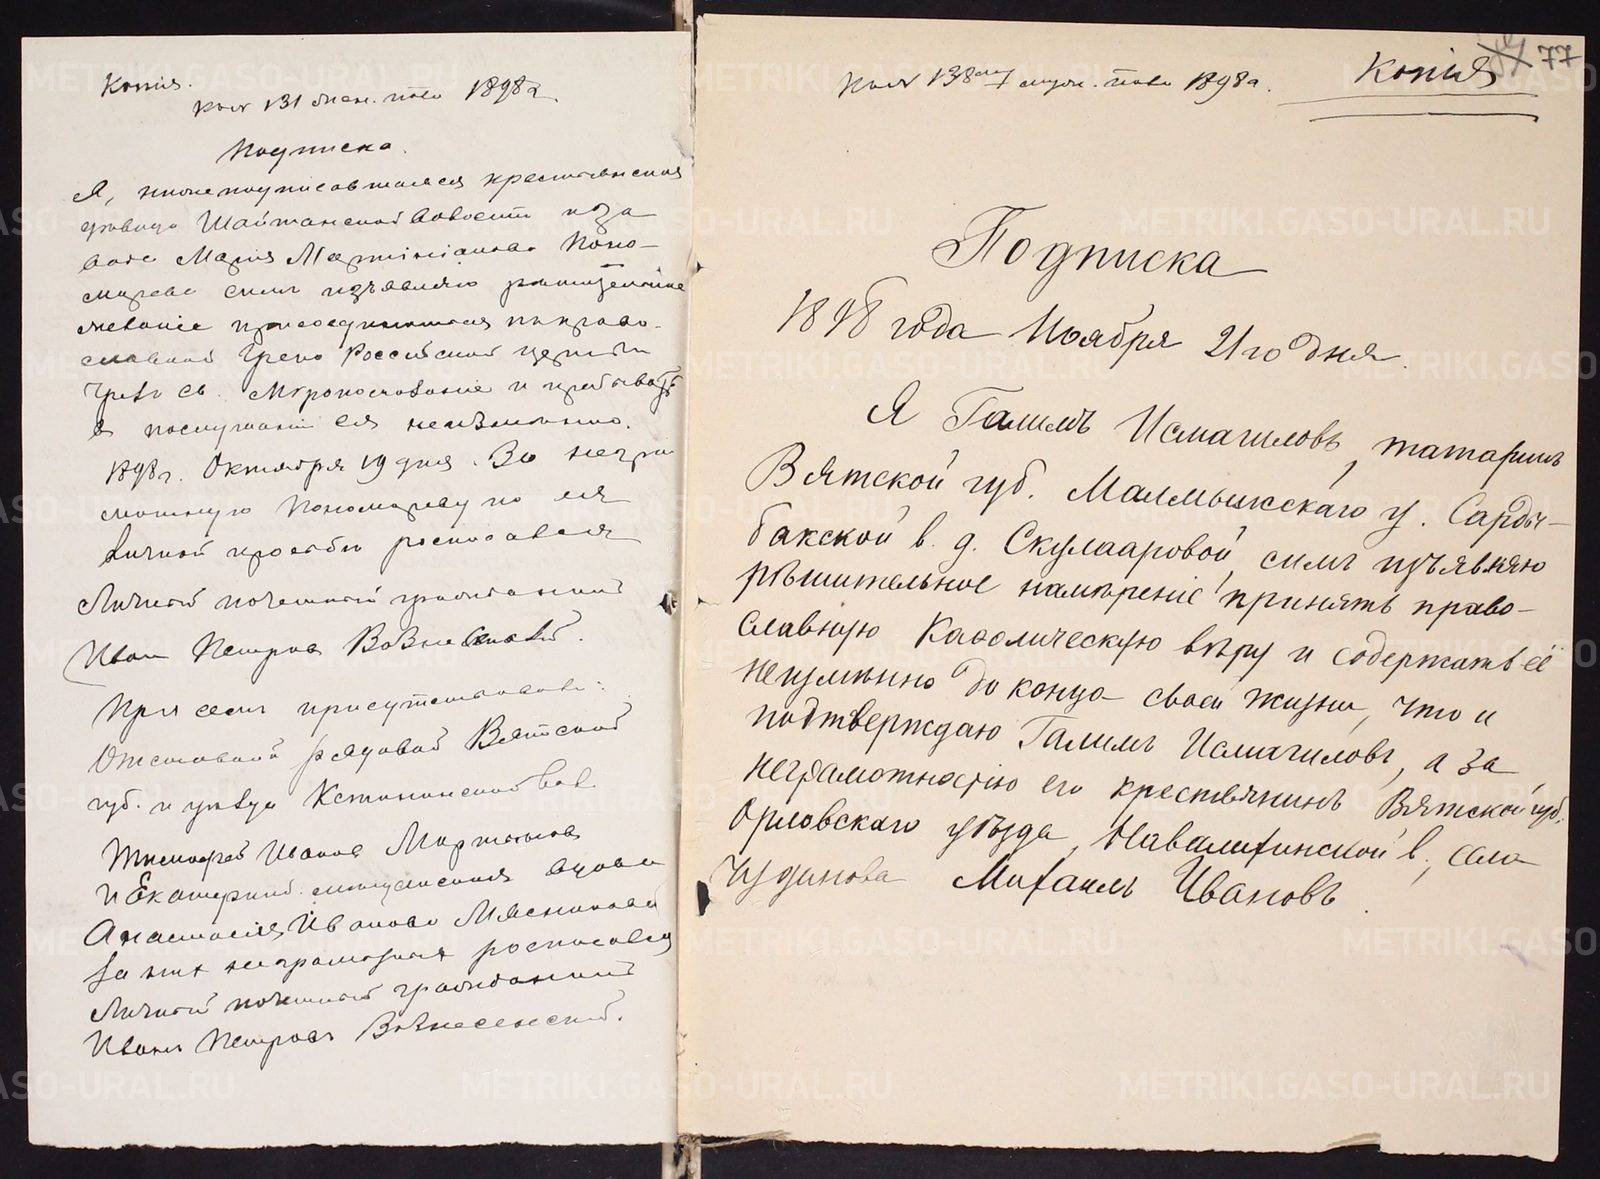 Копія.
къ № 131 жен. пола 1898 г.
Подписка.
Я, нижеподписавшаяся крестьянская
дѣвица Шайтанской волости и за
вода Марія Мартиніанова Поно-
марева симъ изъявляю рѣшительное
желаніе присоединиться къ право-
славной Греко Россійской церкви
чрезъ св. Мѵропомазаніе и пребывать
в послушаніи ея неизмѣнно.
1898 г. Октября 19 дня. За негра
мотную Пономареву по ея
личной просьбѣ росписался
Личный почетный гражданинъ
Иванъ Петровъ Вознесенскій.
При семъ присутствовали:
Отставной рядовой Вятской
губ. и уѣзда Кстининской вол.
Тимофей Ивановъ Мартыновъ
и Екатеринб. мѣщанская вдова
Анастасія Иванова Мясникова
за нихъ неграмотныхъ росписался
Личный почетный гражданинъ
Иванъ Петровъ Вознесенскій.
77
Копія
къ № 138му муж. пола 1898 г.
Подписка
1898 года Ноября 21го дня.
Я Галимъ Исмагиловъ, татаринъ
Вятской губ. Малмыжскаго у. Сарды-
бакской в. д. Скулааровой, симъ изъявляю
рѣшительное намѣреніе принять право-
славную Каѳолическую вѣру и содержать её
неизмѣнно до конца своей жизни, что и
подтверждаю Галимъ Исмагиловъ, а за
неграмотностію его крестьянинъ Вятской губ.
Орловскаго уѣзда, Навалихинской в., села
Чудинова Михаилъ Ивановъ.
METRIKI.GASO-URAL.RU